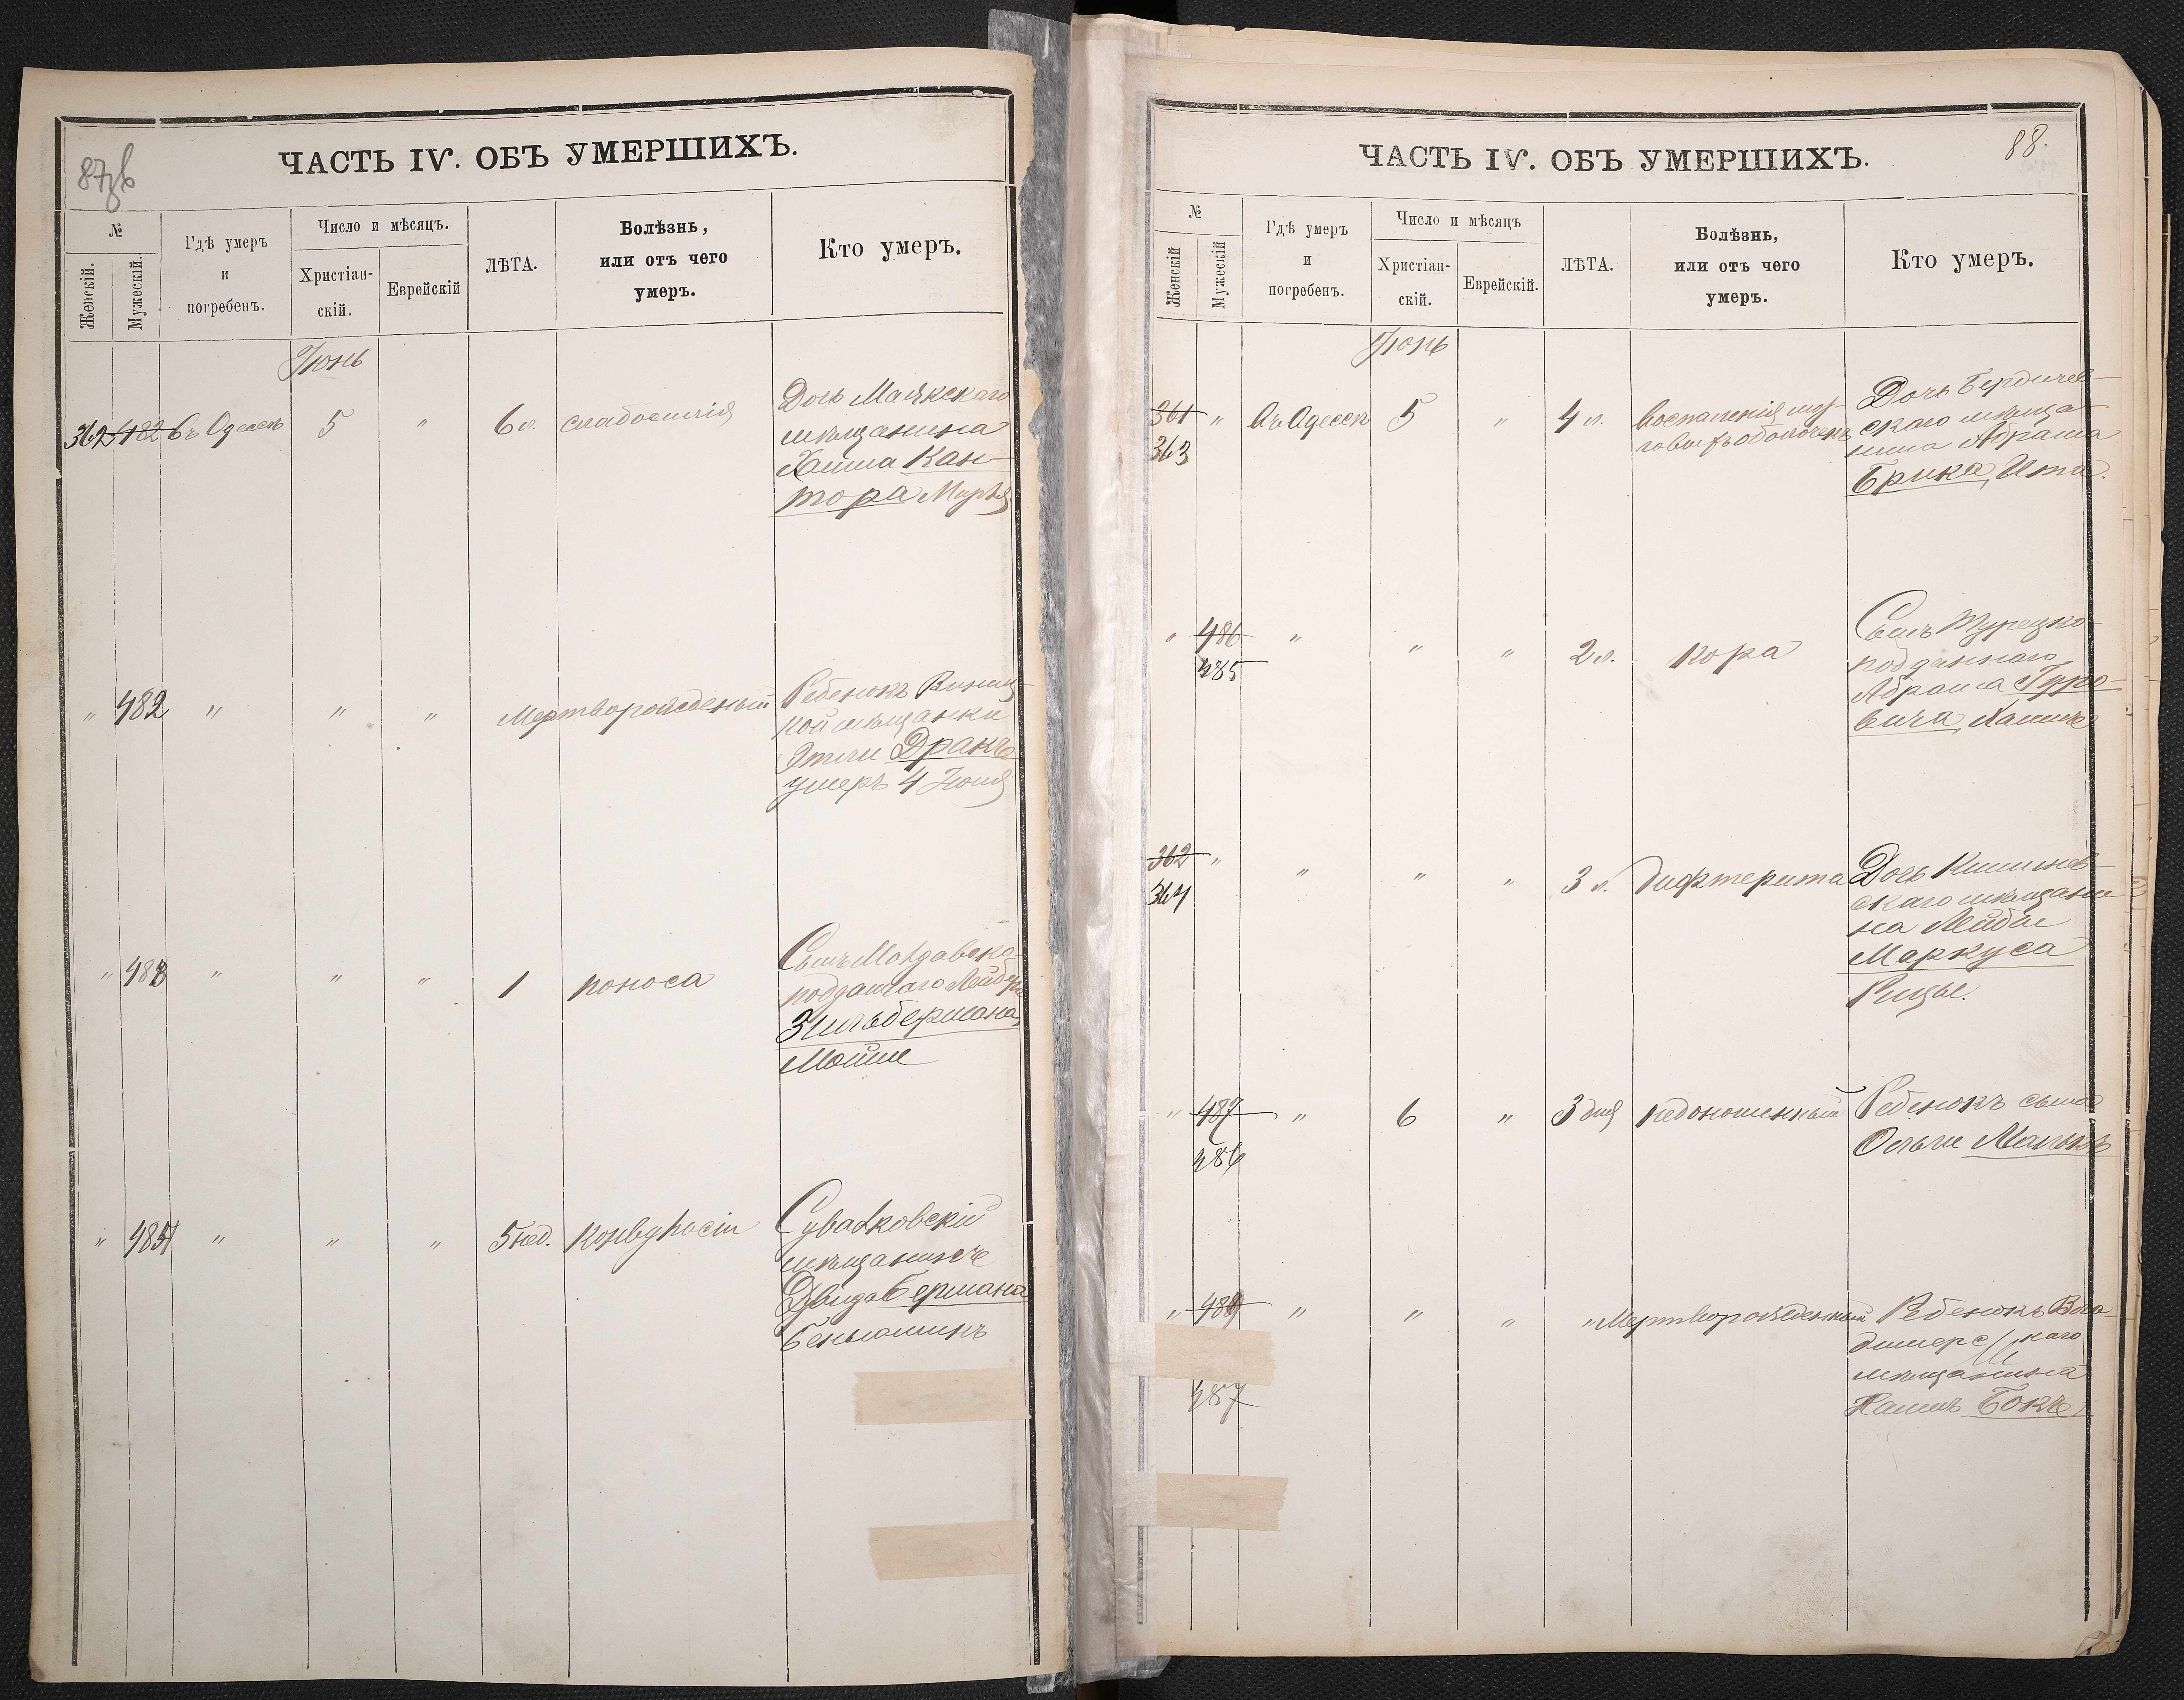 87об
ЧАСТЬ IV. ОБЪ УМЕРШИХЪ.
№
Женскій.
Мужескій.
Гдѣ умеръ
и
погребенъ.
Число и мѣсяцъ.
Христіан-
скій.
Еврейскій
ЛѢТА.
Болѣзнь,
или отъ чего
умеръ.
Кто умеръ.
Іюнь
362 482 Въ Одессѣ 5 " 6 л. слабосилія
Дочь Маякскаго
мѣщанина
Хаима Кан-
тора
" 482 " " " Мертворожденный
Ребенокъ
мѣщанки
Этли Дракъ
умеръ 4 Іюня
" 483 " " " 1 поноса
Сынъ Молдавска
подданаго
Зильбермана,
Мойше
" 484 " " " 5 нед. конвульсіи
Сувалковскій
мѣщанинъ
Давида Германа
Беньюминъ
88.
ЧАСТЬ IV. ОБЪ УМЕРШИХЪ.
№
Женскій
Мужескій
Гдѣ умеръ
и
погребенъ.
Число и мѣсяцъ
Христіан-
скій.
Еврейскій.
ЛѢТА.
Болѣзнь,
или отъ чего
умеръ.
Кто умеръ.
Іюнь
361 " Въ Одессѣ 5 " 4 л.
363
воспаленія моз-
говыхъ оболочекъ
Дочь Бердичев-
скаго мѣща-
нина Абрама
Брика, Ита.
" 486 " " " 2 л. кора
485
Сынъ Турецко-
подданнаго
Абрама Гуро-
вича, Хаимъ
362 " " " " 3 л. дифтерита
364
Дочь Кишинев-
скаго мѣщани-
на Лейбы
Маркуса
" 487 " 6 " 3 дня недоношенный
486
Ребенокъ сына
Ольги
" 488 " " " " Мертворожденный
487
Ребенокъ Вла-
димерскаго
мѣщанина
Хаимъ Бокъ